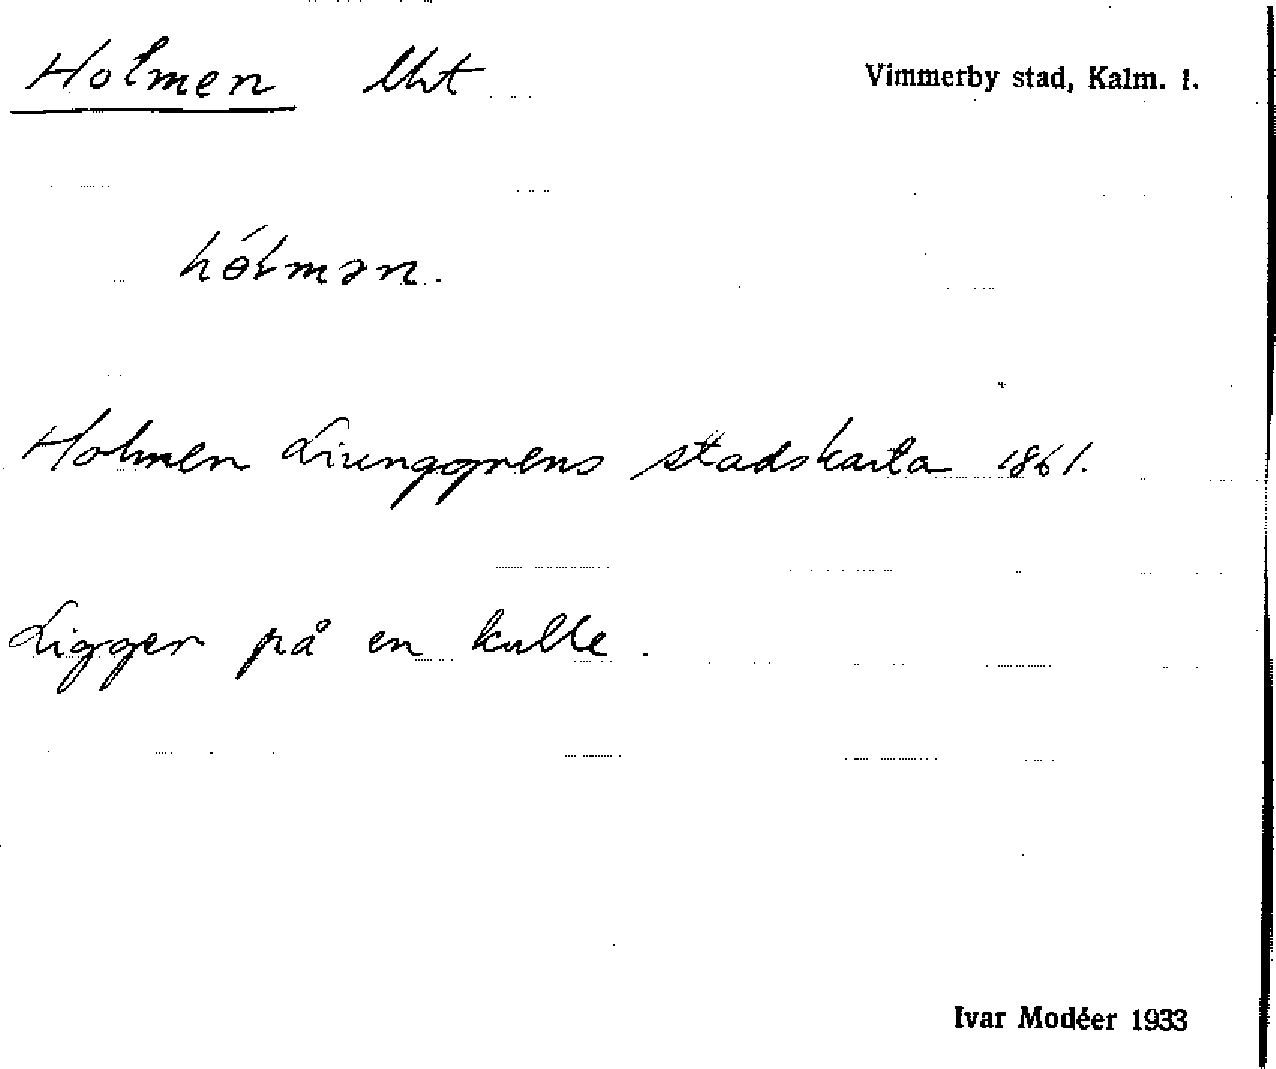 Holmen lht
Vimmerby stad, Kalm. l.
hólmən.
Holmen Liunggrens stadskarta 1861.
Ligger på en kulle.
Ivar Modéer 1933